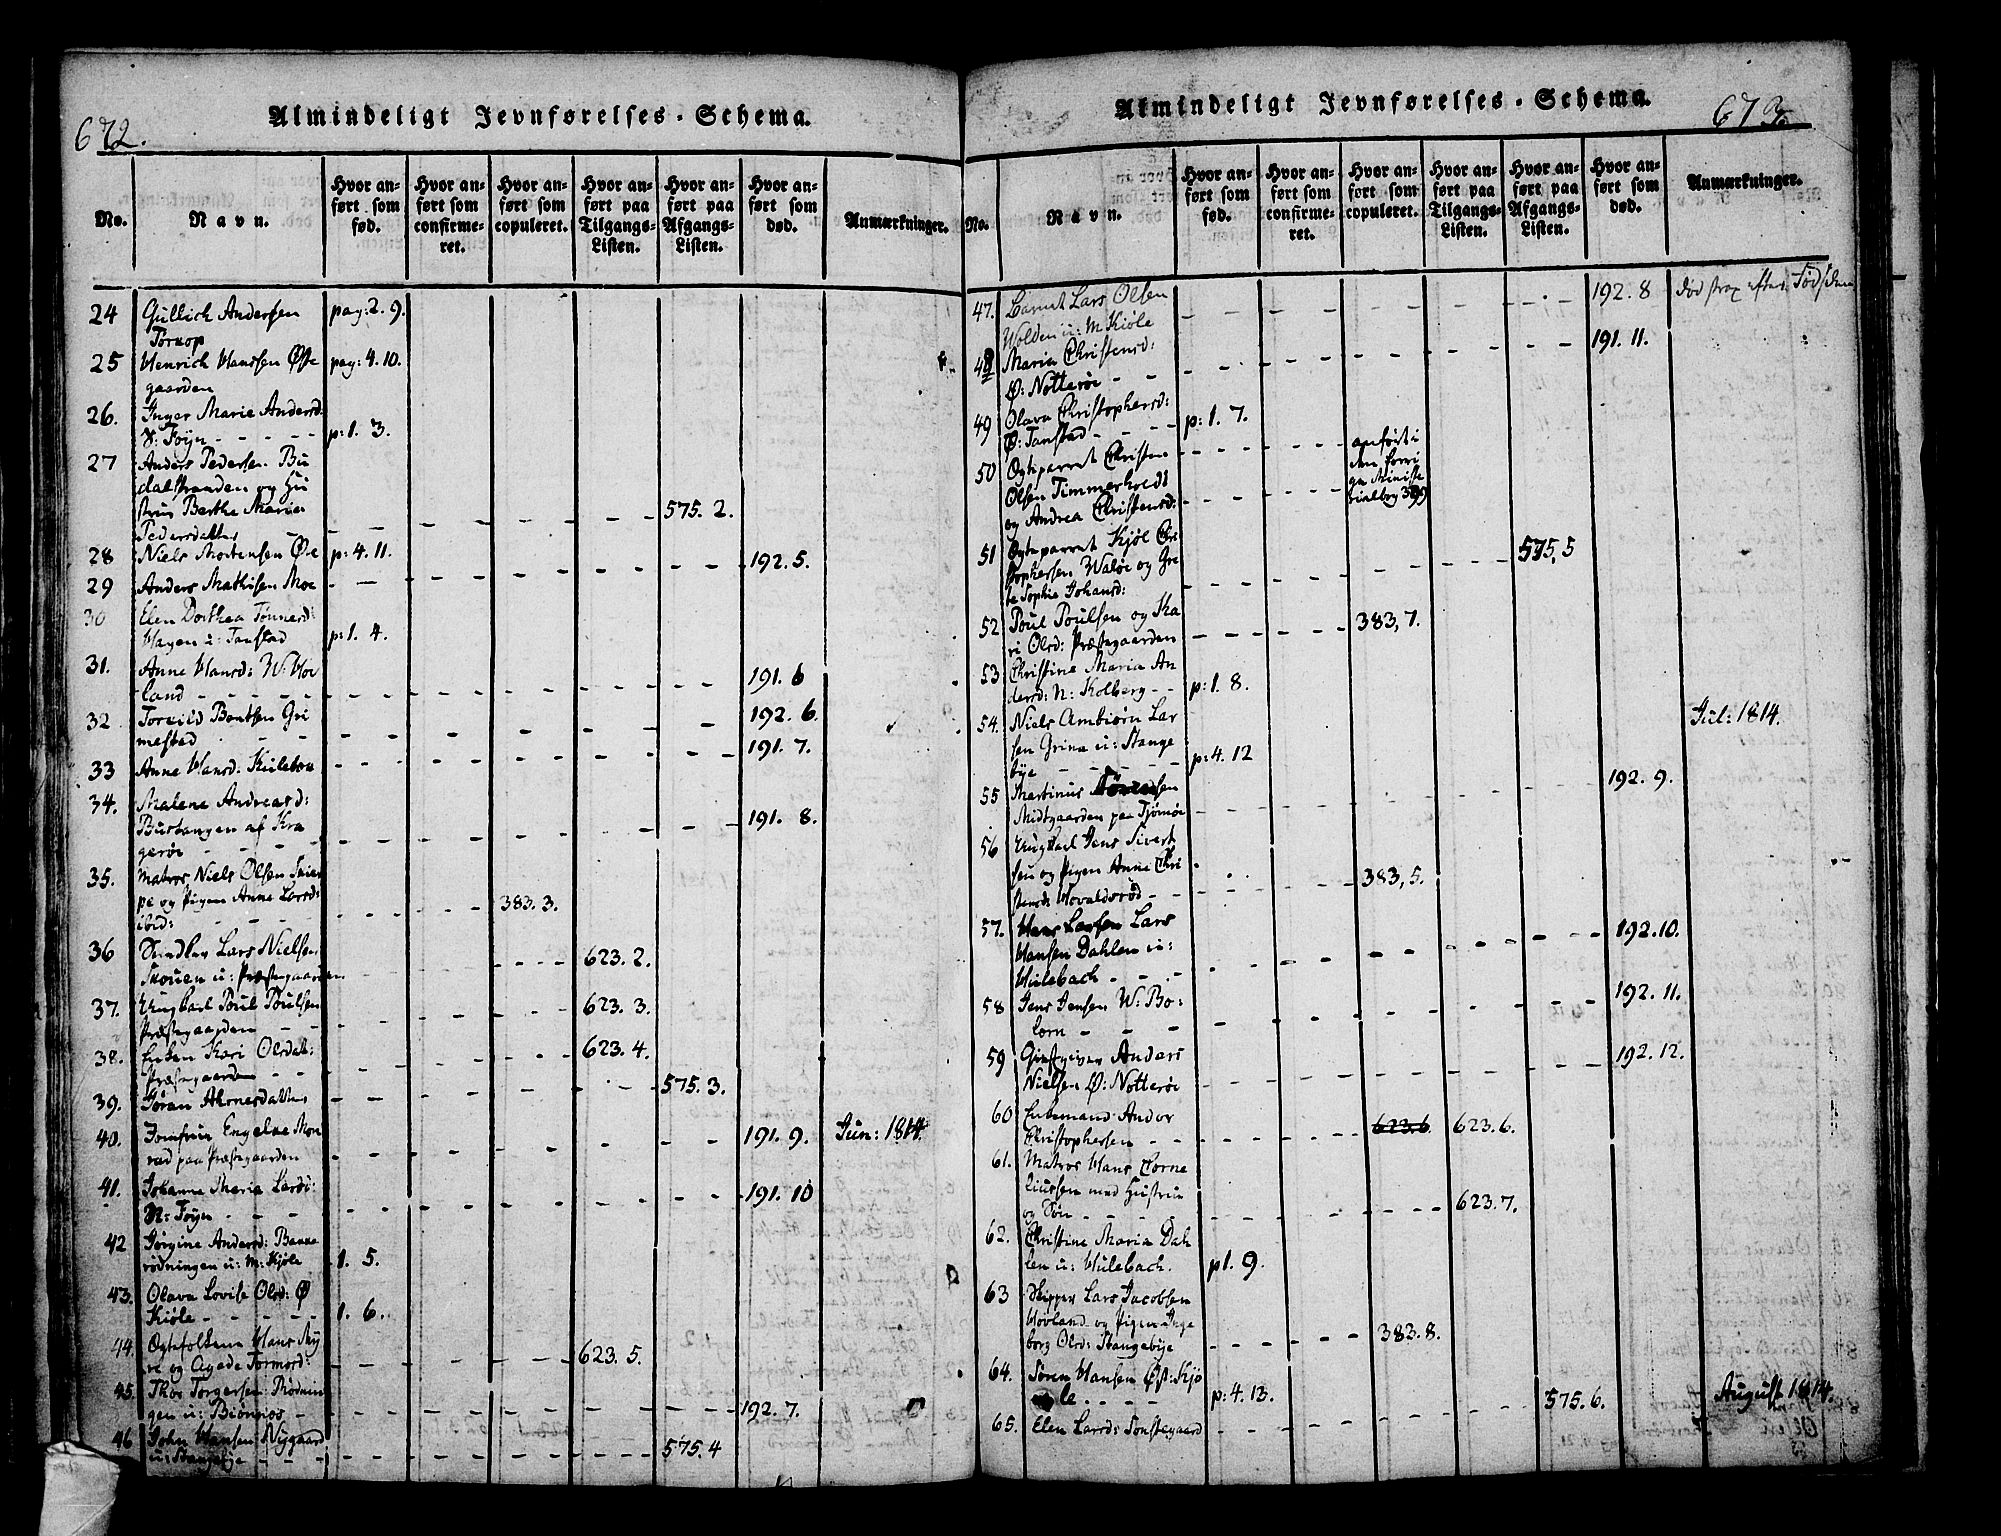 672.
Almindeligt Jevnførelses-Schema.
No.
Navn.
Hvor anført som fød.
Hvor anført som confirmeret.
Hvor anført som copuleret.
Hvor anført paa Tilgangs-Listen.
Hvor anført paa Afgangs-Listen.
Hvor anført som død.
Anmærkninger.
24 Gullich Andersen pag: 2. 9.
Torup
25 Henrich Hanssen Øste pag: 4. 10.
gaarden
26. Inger Marie Andersd:
S: Føyn - - - - - p: 1. 3.
27 Anders Pedersen Bu
dalstranden og Hu
strue Berthe Maria 575. 2.
Pedersdatter
28 Niels Mortensen Øre p: 4. 11.
29 Anders Mathisen Moe - - 192. 5.
30 Elen Dorthea Tønnesd:
Hagen u: Tanstad p: 1. 4.
31. Anne Hansd: W: Hov
land - - - - - 191. 6
32 Torkild Bentsen Gri 192. 6.
mestad
33 Anne Hansd: Hulebak 191. 7.
34. Malene Andreasd:
Bustangen af Kra 191. 8.
gerøe - - - -
35. Matros Niels Olsen Skier
pe og Pigen Anne Larsd:
ibid: - - 383. 3.
36 Snedker Lars Nielsen
Skouen u: Præstegaarden 623. 2.
37. Ungkarl Poul Poulsen
Præstegaarden - - 623. 3.
38. Enken Kari Olsdat:
Præstegaarden - - 623. 4.
39. Jøran Aarnesdatter 575. 3.
40. Jomfrue Engelke Mon 191. 9. Jun: 1814.
rad paa Præstegaarden
41. Johanne Maria Larsd: 191. 10
N: Føyn - - - -
42 Jørgine Andersd: Bakke
rødningen u: M: Kjøle 1. 5.
43. Olava Lovise Olsd: Ø
Kiøle - - - - - 1. 6.
44. Ogtefolkene Hans My
re og Agade Tormod: 623. 5.
45. Thor Torgersen Rødnin
gen u: Biønnes - 192. 7.
46 John Hansen Nygaard
u: Stangebye - - - 575. 4
Almindeligt Jevnførelses-Schema.
673.
No.
Navn.
Hvor anført som fød.
Hvor anført som confirmeret.
Hvor anført som copuleret.
Hvor anført paa Tilgangs-Listen.
Hvor anført paa Afgangs-Listen.
Hvor anført som død.
Anmærkninger.
47. Barnet Lars Olsen 192. 8 død strax efter Fødslen
Wolden u: M Kiøle
48 Maria Christensd: 191. 11.
Ø: Nøtterøe - -
49 Olava Christophersd:
Ø: Tanstad - - - - p: 1. 7.
50 Ogteparret Christen
Olsen Timmerholdt
og Andrea Christensd:
anført i
den forri
ge Ministe
rialbog 399
51 Ogteparret Kjøl Chri 575, 5
stophersen Waløe og Gre
te Sophie Johansd:
52 Poul Poulsen og Ka 383, 7.
ri Olsd: Præstegaarden
53 Christine Maria An
dersd: N: Kolberg - - p: 1. 8.
54. Niels Ambiørn Lar Jul: 1814.
sen Grina u: Stange
bye - - - - - p: 4. 12
55 Martinus Sørensen 192. 9.
Midtgaarden paa Tjømøe
56 Ungkarl Jens Sivert
sen og Pigen Anne Chri
stensd: Hovaldsrød - - 383, 5.
57. Hans Larsen Lars 192. 10.
Hansen Dahlen u:
Hulebach - - -
58 Jens Jensen W: Bo: 192. 11.
lærn - - -
59 Giestgiver Anders 192. 12.
Nielsen Ø: Nøtterøe
60 Enkemand Andor
Christophersen - - 623. 6. 623. 6.
61. Matros Hans Corne
liussen med Hustrue
og Søn - - - - 623. 7.
62. Christine Maria Dah
len u: Hulebach. p 1. 9.
63 Skipper Lars Jacobsen
Hovland og Pigen Inge
borg Olsd: Stangebye 383. 8.
64. Søren Hansen Øst: Kjø
le - - - - p: 4. 13. 575. 6. August 1814.
65. Elen Larsd: Tonstegaard